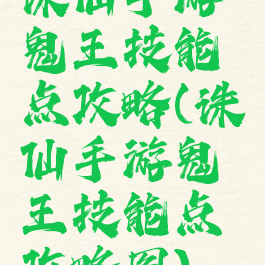 诛仙手游
鬼王技能
点攻略(诛
仙手游鬼
王技能点
攻略图)